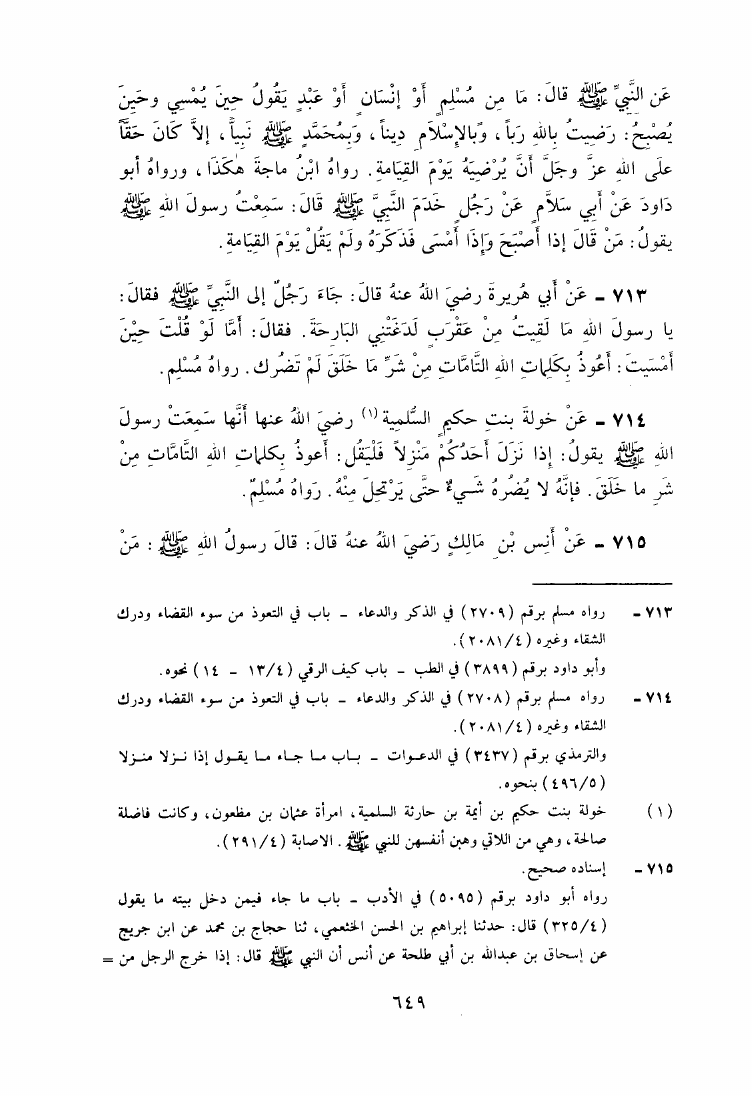 عَن النَّبِيِّ ﷺ قالَ: مَا مِن مُسْلِمٍ أَوْ إِنْسَانٍ أَوْ عَبْدٍ يَقُولُ حِينَ يُمْسِي وحَينَ
يُصْبِحُ: رَضِيتُ بِاللهِ رَباً، وَبالإسْلَامِ دِيناً، وَبِمُحَمَّدٍ ﷺ نَبِياً، إلاَّ كَانَ حَقاً
على اللهِ عزَّ وجَلَّ أَنَّ يُرْضِيَهُ يَوْمَ القِيَامَةِ. رواهُ ابْنُ ماجةَ هٰكَذَا، ورواهُ أبو
دَاودَ عَنْ أبي سَلاَّمٍ عَنْ رَجُلٍ خَدَمَ النَّبِيَّ ﷺ قَالَ: سَمِعْتُ رسولَ اللهِ ﷺ
يقولُ: مَنْ قَالَ إذا أَصْبَحَ وَإِذَا أَمْسَى فَذَكَرَهُ ولَمْ يَقُلْ يَوْمَ القِيَامَةِ.
٧١٣ ـ عَنْ أَبي هُريرةَ رضيَ اللهُ عنهُ قالَ: جَاءَ رَجُلٌ إلى النَّبِيِّ ﷺ فقالَ:
يا رسولَ اللهِ مَا لَقِيتُ مِنْ عَقْرَبٍ لَدَغَتْنِي البَارِحَةَ. فقالَ: أَمَّا لَوْ قُلْتَ حِيْنَ
أَمْسَيتَ: أَعُوذُ بِكَلِماتِ اللهِ التَّامَّاتِ مِنْ شَرِّ مَا خَلَقَ لَمْ تَضُرك. رواهُ مُسْلِم.
٧١٤ ـ عَنْ خولةَ بنتِ حكيمٍ السُّلمية (١) رضيَ اللهُ عنها أَنَّها سَمِعَتْ رسولَ
اللهِ ﷺ يقولُ: إذا نَزَلَ أَحَدُكُمْ مَنْزِلاً فَلْيَقُل: أعوذُ بِكلماتِ اللهِ التَّامَّاتِ مِنْ
شَرِ ما خَلَقَ. فإنَّهُ لا يُضُرهُ شَيءٌ حتَّى يَرْتَحِلَ مِنْهُ. رَواهُ مُسْلِمٌ.
٧١٥ ـ عَنْ أَنسِ بْنِ مَالِكٍ رَضيَ اللهُ عنهُ قالَ: قالَ رسولُ اللهِ ﷺ: مَنْ
٧١٣ ـ رواه مسلم برقم (٢٧٠٩) في الذكر والدعاء ـ باب في التعوذ من سوء القضاء ودرك
الشقاء وغيره (٢٠٨١/٤).
وأبو داود برقم (٣٨٩٩) في الطب ـ باب كيف الرقي (١٣/٤ ـ ١٤) نحوه.
٧١٤ ـ رواه مسلم برقم (٢٧٠٨) في الذكر والدعاء ـ باب في التعوذ من سوء القضاء ودرك
الشقاء وغيره (٢٠٨١/٤).
والترمذي برقم (٣٤٣٧) في الدعوات ـ باب ما جاء ما يقول إذا نزلا منزلا
(٤٩٦/٥) بنحوه.
(١) خولة بنت حكيم بن أيمة بن حارثة السلمية، امرأة عثمان بن مظعون، وكانت فاضلة
صالحة، وهي من اللاتي وهبن أنفسهن للنبي ﷺ. الاصابة (٢٩١/٤).
٧١٥ ـ إسناده صحيح.
رواه أبو داود برقم (٥٠٩٥) في الأدب ـ باب ما جاء فيمن دخل بيته ما يقول
(٣٢٥/٤) قال: حدثنا إبراهيم بن الحسن الخثعمي، ثنا حجاج بن محمد عن ابن جريج
عن إسحاق بن عبدالله بن أبي طلحة عن أنس أن النبي ﷺ قال: إذا خرج الرجل من =
٦٤٩